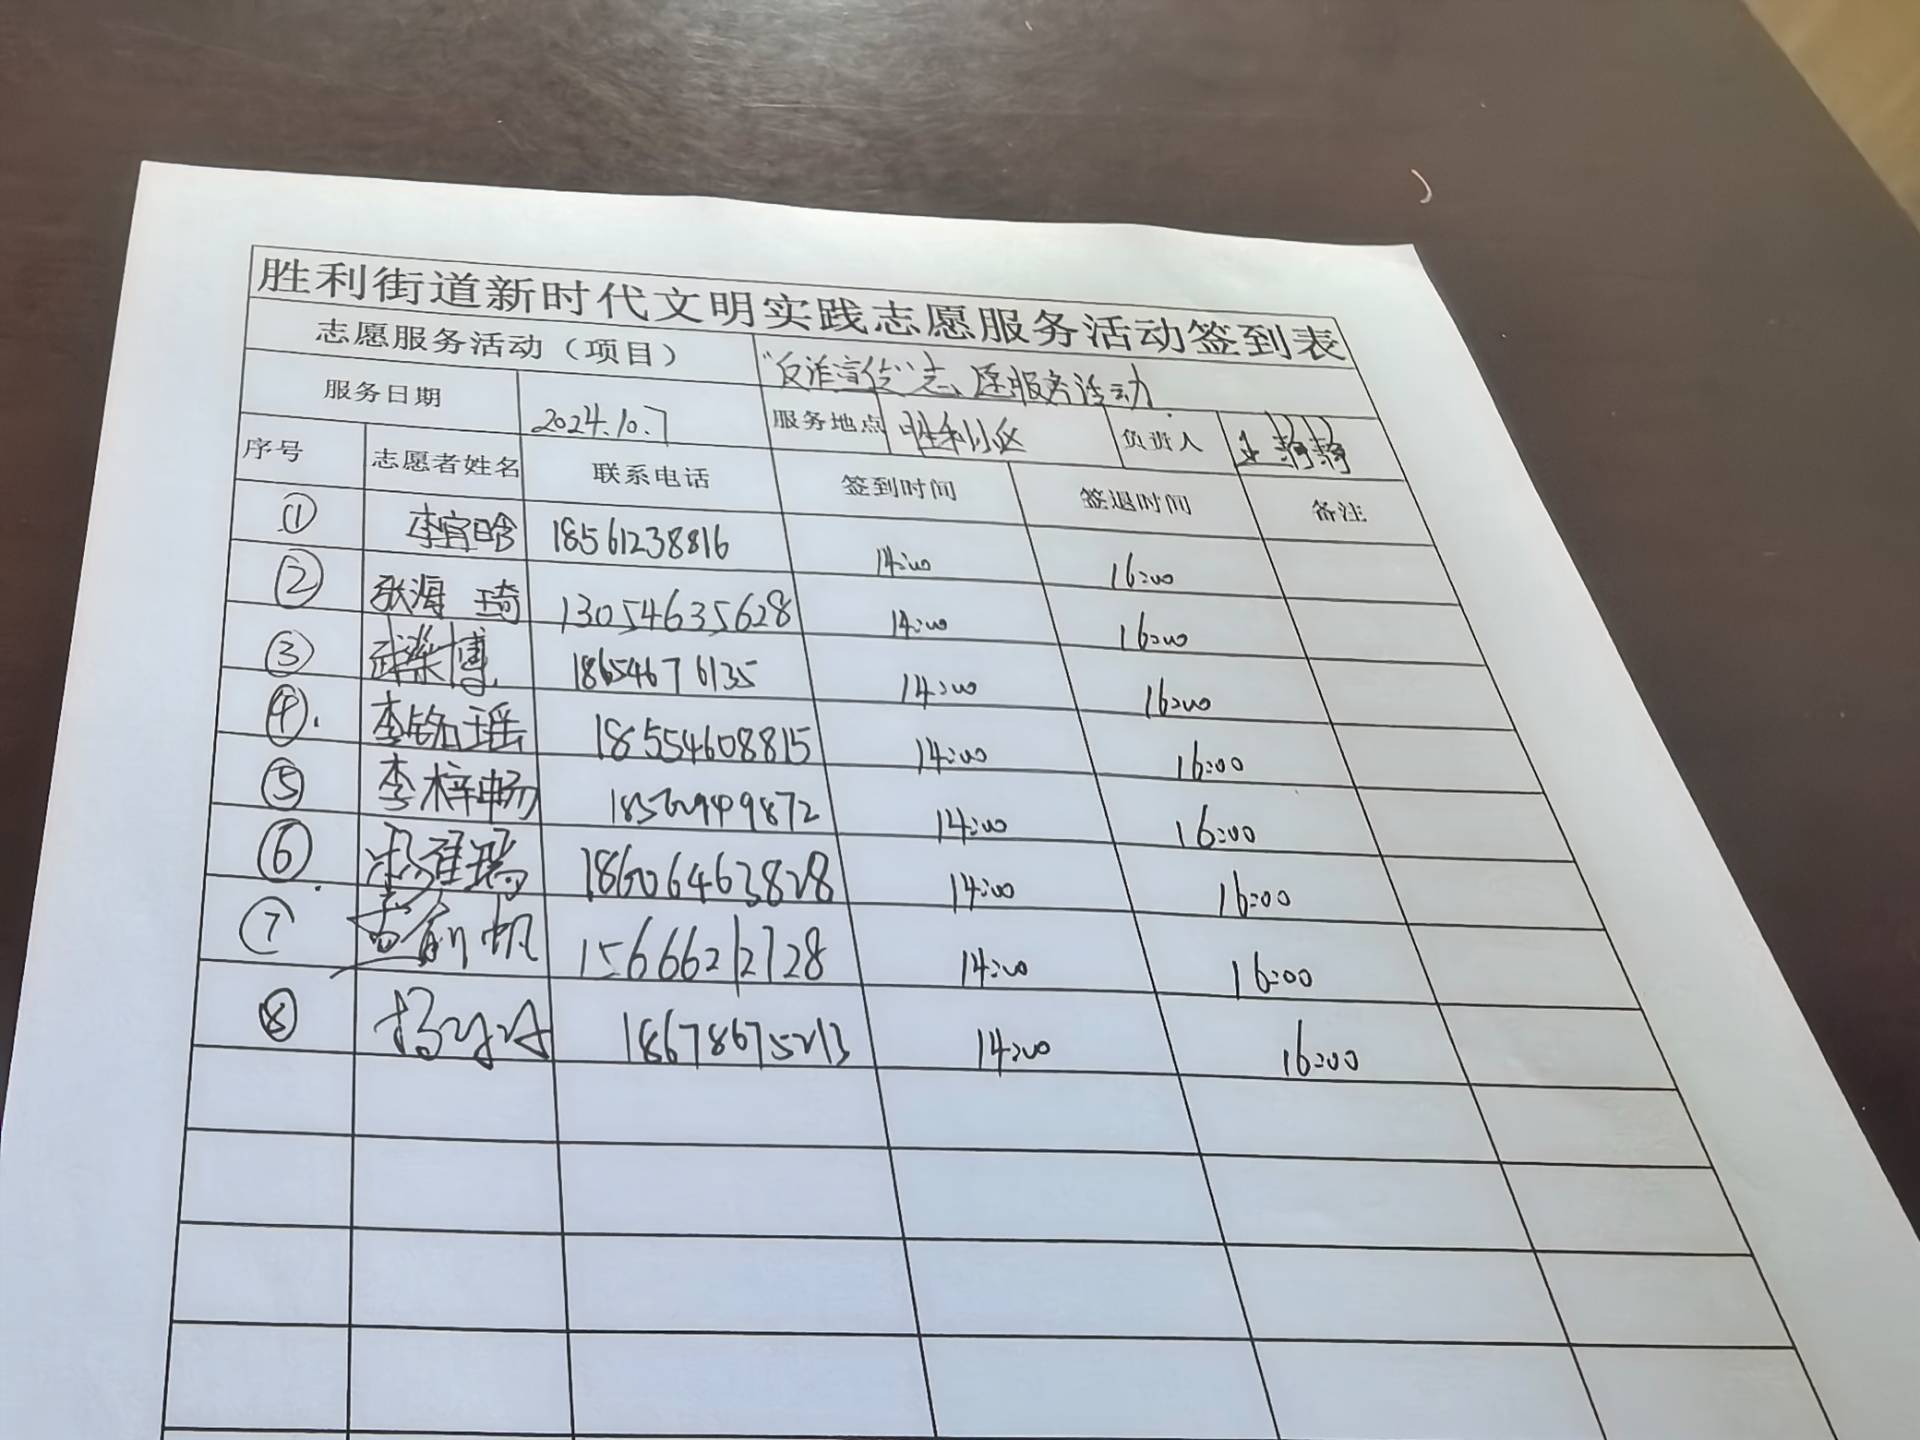 胜利街道新时代文明实践志愿服务活动签到表
志愿服务活动（项目） “反诈宣传”志愿服务活动
服务日期 2024.10.7 服务地点 胜利小区 负责人 王静静
序号 志愿者姓名 联系电话 签到时间 签退时间 备注
① 李宜晗 18561238816 14:00 16:00
② 张海琦 13054635628 14:00 16:00
③ 武梁博 18654676135 14:00 16:00
④. 李铭瑶 18554608815 14:00 16:00
⑤ 李梓畅 14:00 16:00
⑥ 雅瑞 18606463828 14:00 16:00
⑦ 孟 帆 15666212728 14:00 16:00
⑧ 杨 18678675213 14:00 16:00